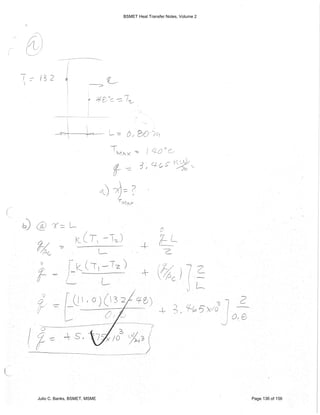 BSMET Heat Transfer Notes, Volume 2
T₁ = 132
q
48°C = T₂
L = 0.80 m
T_MAX = 140°C
q = 3.465 KW/m²
a) x) = ?
T_MAX
b) @ r = L
q/Ac = K(T₁ - T₂)/L + q̇L/2
q̇ = [-K(T₁ - T₂)/L + (q/Ac)] 2/L
q̇ = [(11.0)(132 - 48)/ + 3.465x10³] 2/0.8
Julio C. Banks, BSMET, MSME
Page 136 of 159